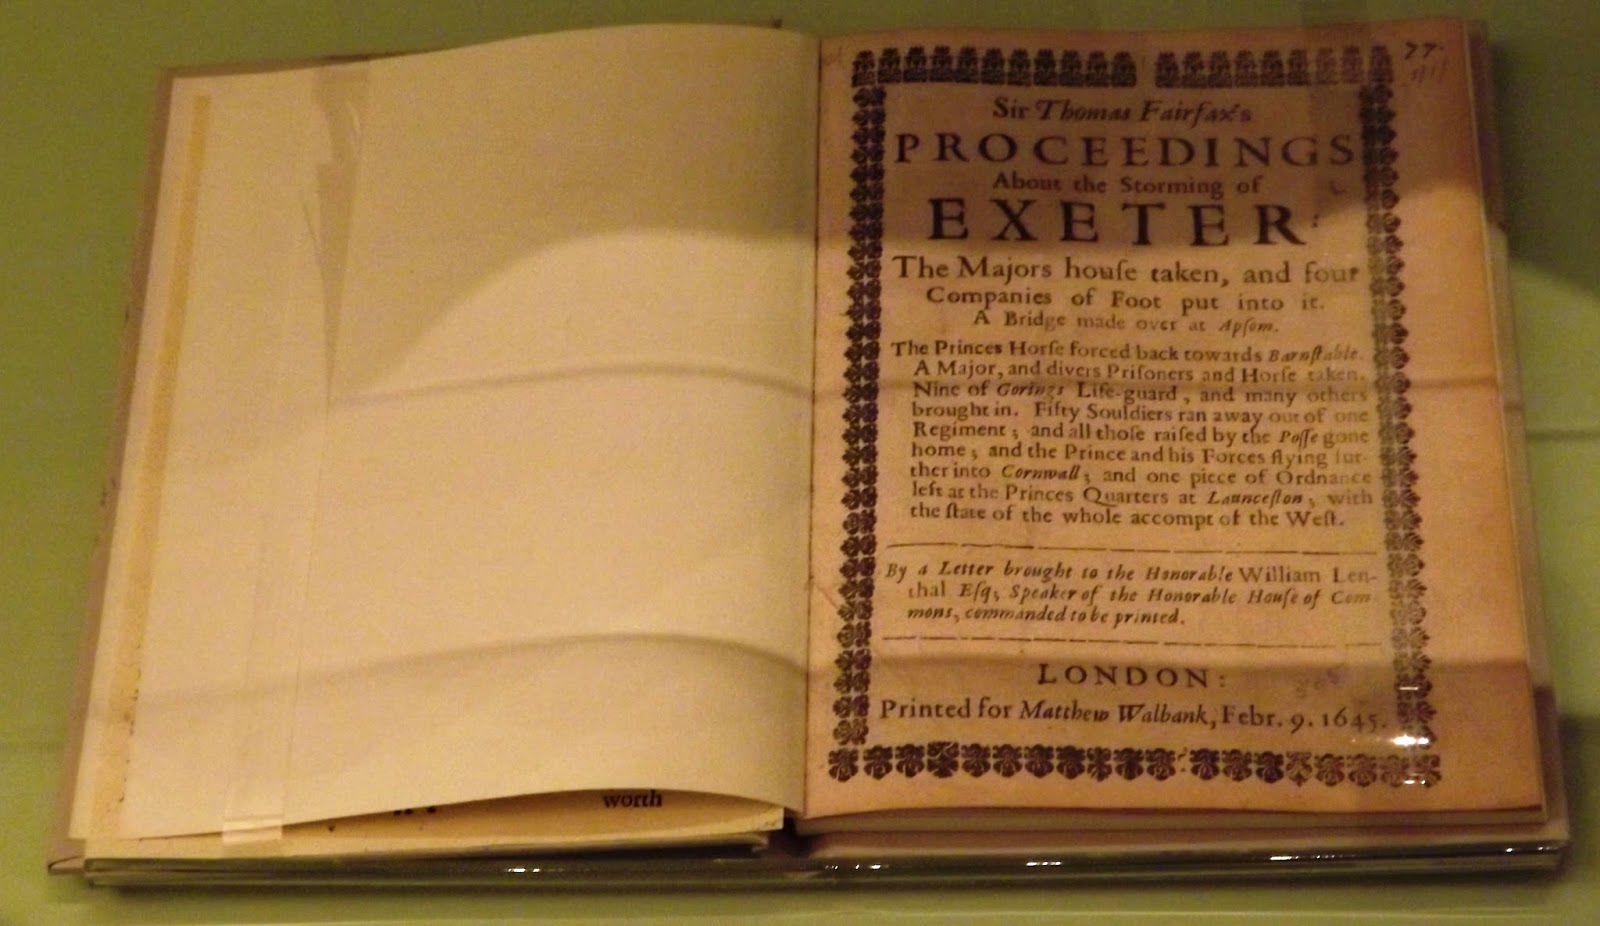 77.
Sir Thomas Fairfax's
PROCEEDINGS
About the Storming of
EXETER:
The Majors houſe taken, and four
Companies of Foot put into it.
A Bridge made over at Apſom.
The Princes Horſe forced back towards Barnſtable.
A Major, and divers Priſoners and Horſe taken.
Nine of Gorings Life-guard, and many others
brought in. Fifty Souldiers ran away out of one
Regiment; and all thoſe raiſed by the Poſſe gone
home; and the Prince and his Forces flying fur-
ther into Cornwall; and one piece of Ordnance
left at the Princes Quarters at Launceſton; with
the ſtate of the whole accompt of the Weſt.
By a Letter brought to the Honorable William Len-
thal Eſq; Speaker of the Honorable Houſe of Com
mons, commanded to be printed.
LONDON:
Printed for Matthew Walbank, Febr. 9. 1645.
worth